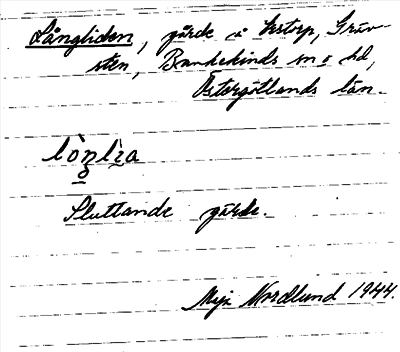 Långliden, gärde å Västorp, Gräv-
sten, Bankekinds sn o hd,
Östergötlands län.
lònlìza
Sluttande gärde.
Maja Nordlund 1944.